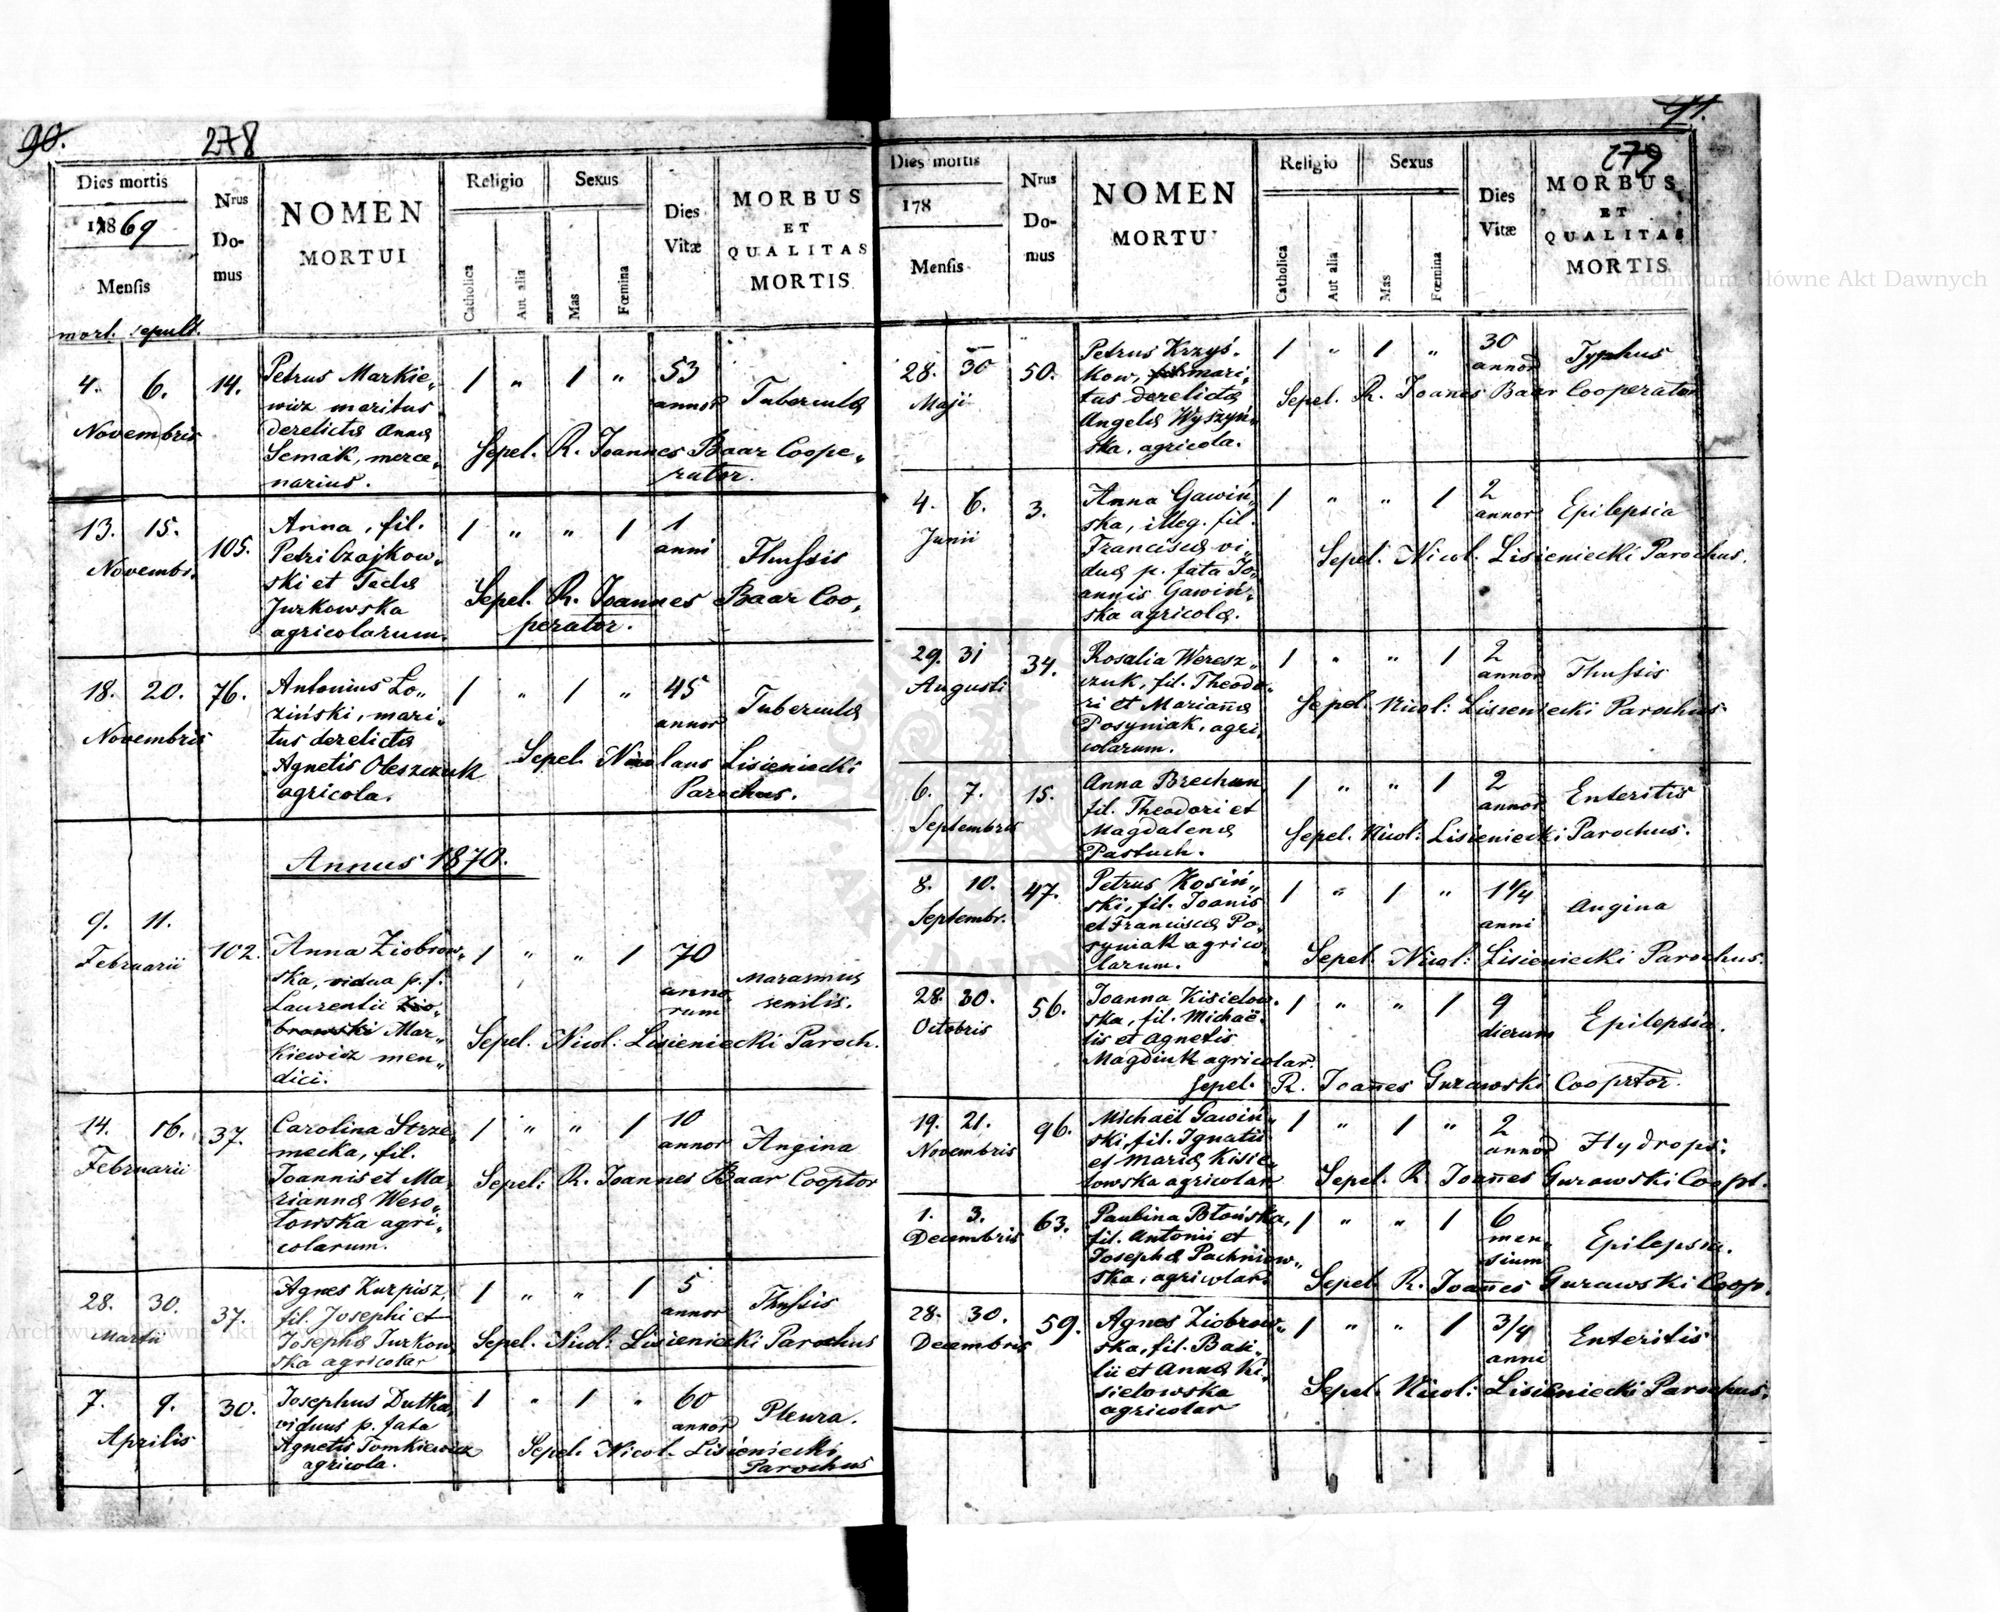 90.
278
Dies mortis
1869
Mensis
mort. sepult.
Nrus
Do-
mus
NOMEN
MORTUI
Religio
Catholica
Aut alia
Sexus
Mas
Fœmina
Dies
Vitæ
MORBUS
ET
QUALITAS
MORTIS
4. 6.
Novembris
14.
Petrus Markie„
wicz maritus
derelictæ Annæ
Semak, merce„
narius.
1 „ 1 „
53
annor
Tuberculæ
Sepel. R. Joannes Baar Coope„
rator.
13. 15.
Novembr.
105.
Anna, fil.
Petri Czajkow„
ski et Teclæ
Jurkowska
agricolarum.
1 „ „ 1
1
anni
Thussis
Sepel. R. Joannes Baar Coo„
perator.
18. 20.
Novembris
76.
Antonius Lo„
ziński, mari„
tus derelictæ
Agnetis Oleszczuk
agricola.
1 „ 1 „
45
annor
Tuberculæ
Sepel. Nicolaus Lisieniecki
Parochus.
Annus 1870.
9. 11.
Februarii
102.
Anna Ziobrow„
ska, vidua p. f.
Laurentii Zio„
browski Mar„
kiewicz men„
dici.
1 „ „ 1
70
anno
rum
Marasmus
senilis.
Sepel. Nicol: Lisieniecki Paroch.
14. 16.
Februarii
37.
Carolina Strze„
mecka, fil.
Joannis et Ma„
riannæ Weso„
łowska agri„
colarum.
1 „ „ 1
10
annor
Angina
Sepel: R. Joannes Baar Cooptor
28. 30.
Martii
37.
Agnes Kurpisz,
fil. Josephi et
Josephæ Jurkow
ska agricolar
1 „ „ 1
5
annor
Thussis
Sepel. Nicol: Lisieniecki Parochus
7. 9.
Aprilis
30.
Josephus Dutka,
viduus p. fata
Agnetis Tomkiewicz
agricola.
1 „ 1 „
60
annor
Pleura.
Sepel. Nicol. Lisieniecki
Parochus
91.
279
Dies mortis
178
Mensis
Nrus
Do-
mus
NOMEN
MORTU
Religio
Catholica
Aut alia
Sexus
Mas
Fœmina
Dies
Vitæ
MORBUS
ET
QUALITAS
MORTIS
28. 30
Maji
50.
Petrus Krzyś„
kow, mari„
tus derelictæ
Angelæ Wyszyń„
ska, agricola.
1 „ 1 „
30
annor
Typhus
Sepel. R. Joannes Baar Cooperator
4. 6.
Junii
3.
Anna Gawiń„
ska, illeg. fil.
Franciscæ vi„
duæ p. fata Jo„
annis Gawiń„
ska agricolæ.
1 „ „ 1
2
annor
Epilepsia
Sepel. Nicol. Lisieniecki Parochus.
29. 31
Augusti
34.
Rosalia Weresz„
czuk, fil. Theodo„
ri et Mariannæ
Posyniak, agri„
colarum.
1 „ „ 1
2
annor
Thussis
Sepel. Nicol: Lisieniecki Parochus
6. 7.
Septembris
15.
Anna Brechun,
fil. Theodori et
Magdalenæ
Pastuch.
1 „ „ 1
2
annor
Enteritis
Sepel. Nicol: Lisieniecki Parochus.
8. 10.
Septembr.
47.
Petrus Kosiń„
ski, fil. Joanis
et Franciscæ Po„
syniak agrico„
larum.
1 „ 1 „
1 1/4
anni
Angina
Sepel. Nicol: Lisieniecki Parochus.
28. 30.
Octobris
56.
Joanna Kisielow„
ska, fil. Michaë„
lis et Agnetis
Magdiuk agricolar.
1 „ „ 1
9
dierum
Epilepsia.
Sepel. R. Joañes Gurawski Cooprtor.
19. 21.
Novembris
96.
Michaël Gawiń„
ski, fil. Ignatii
et Mariæ Kisie„
lowska agricolar
1 „ 1 „
2
annor
Hydrops:
Sepel. R. Joañes Gurawski Coopt.
1. 3.
Decembris
63.
Paulina Błońska,
fil. Antonii et
Josephæ Pachniow„
ska, agricolar.
1 „ „ 1
6
men„
sium
Epilepsia.
Sepel. R. Joañes Gurawski Coop.
28. 30.
Decembris
59.
Agnes Ziobrow„
ska, fil. Basi„
lii et Annæ Ki„
sielowska
agricolar
1 „ „ 1
3/4
anni
Enteritis
Sepel. Nicol: Lisieniecki Parochus.
Archiwum Główne Akt Dawnych